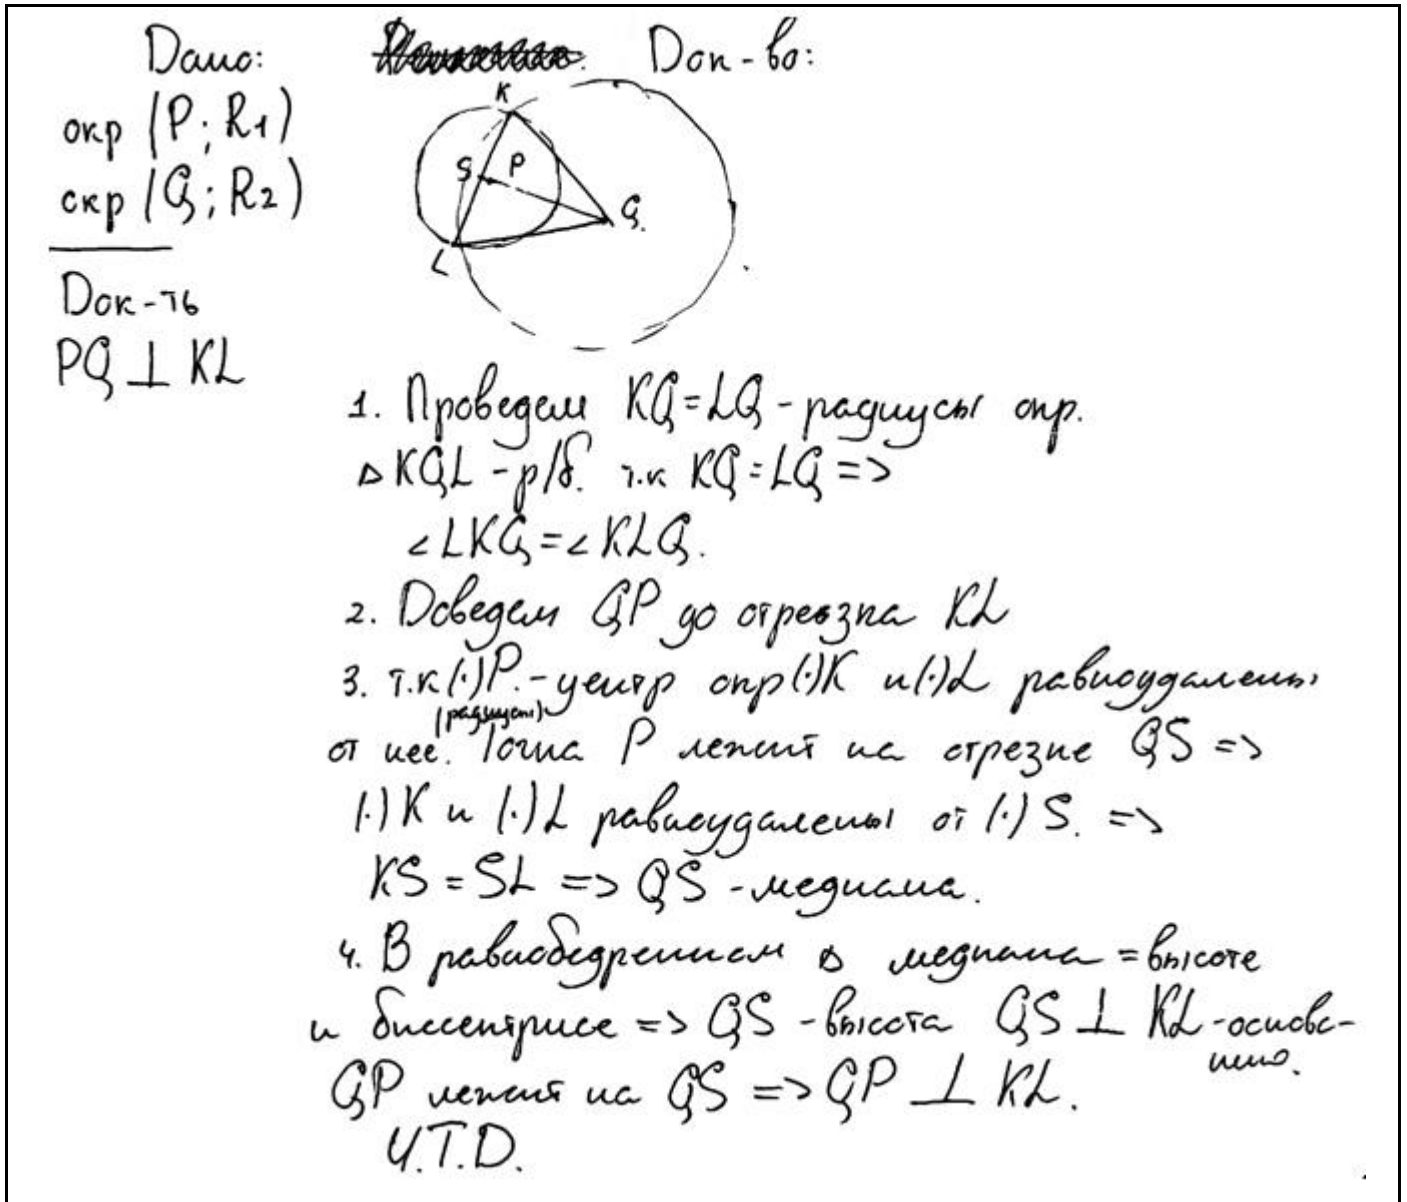 Дано:
Док-во:
окр (P; R1)
окр (Q; R2)
Док-ть
PQ ⊥ KL
K
S P
Q
L
1. Проведем KQ = LQ - радиусы окр.
△ KQL - р/б. т.к KQ = LQ =>
∠LKQ = ∠KLQ.
2. Доведем QP до отрезка KL
3. т.к (·)P. - центр окр (·)K и (·)L равноудалены
(радиусы)
от нее. Точка P лежит на отрезке QS =>
(·)K и (·)L равноудалены от (·)S. =>
KS = SL => QS - медиана.
4. В равнобедренном △ медиана = высоте
и биссектрисе => QS - высота QS ⊥ KL - основа-
нию.
QP лежит на QS => QP ⊥ KL.
Ч.Т.D.